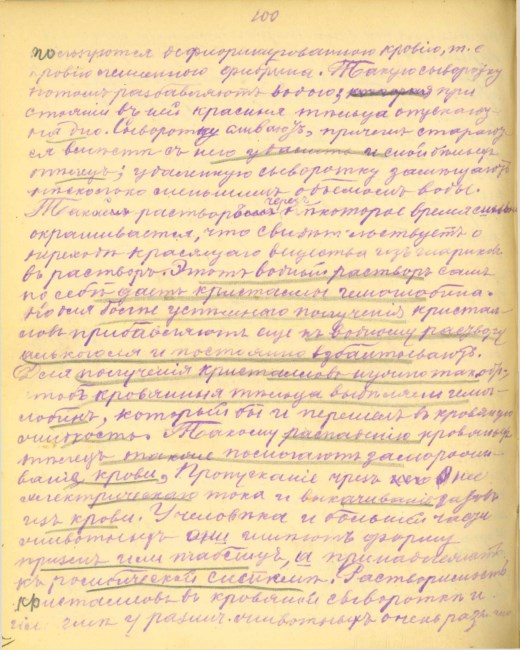 100
пользуются дефибринированною кровью, т. е.
кровью лишенною фибрина. Такую сыворотку
потомъ разбавляютъ водою, при
стояніи въ ней красныя тѣльца опускают
на дно. Сыворотку сливаютъ, причемъ стараются
ся вмѣстѣ съ нею удалить и слой бѣлыхъ
тѣлецъ; удаленную сыворотку замѣщаютъ
нѣсколько меньшимъ объемомъ воды.
Такой растворъ черезъ нѣкоторое время сильно
окрашивается, что свидѣтельствуетъ о
переходѣ красящаго вещества изъ шариковъ
въ растворъ. Этотъ водный растворъ самъ
по себѣ даетъ кристаллы гемоглобина.
Но для болѣе успѣшнаго полученія кристал-
ловъ прибавляютъ еще къ водному раствору
алкоголя и постоянно взбалтываютъ.
Для полученія кристалловъ нужно также,
чтобъ кровяныя тѣльца выдѣляли гемо-
глобинъ, который бы и перешелъ въ кровяную
жидкость. Такому распаденію кровяныхъ
тѣлецъ также помогаютъ заморажи-
ваніе крови, Пропусканіе чрезъ нее
электрическаго тока и выкачиваніе газовъ
изъ крови. У человѣка и большей части
животныхъ они имѣютъ форму
призмъ или таблицъ, а принадлежатъ
къ ромбической системѣ. Растворимость
кристалловъ въ кровяной сывороткѣ и
у разныхъ животныхъ очень раз